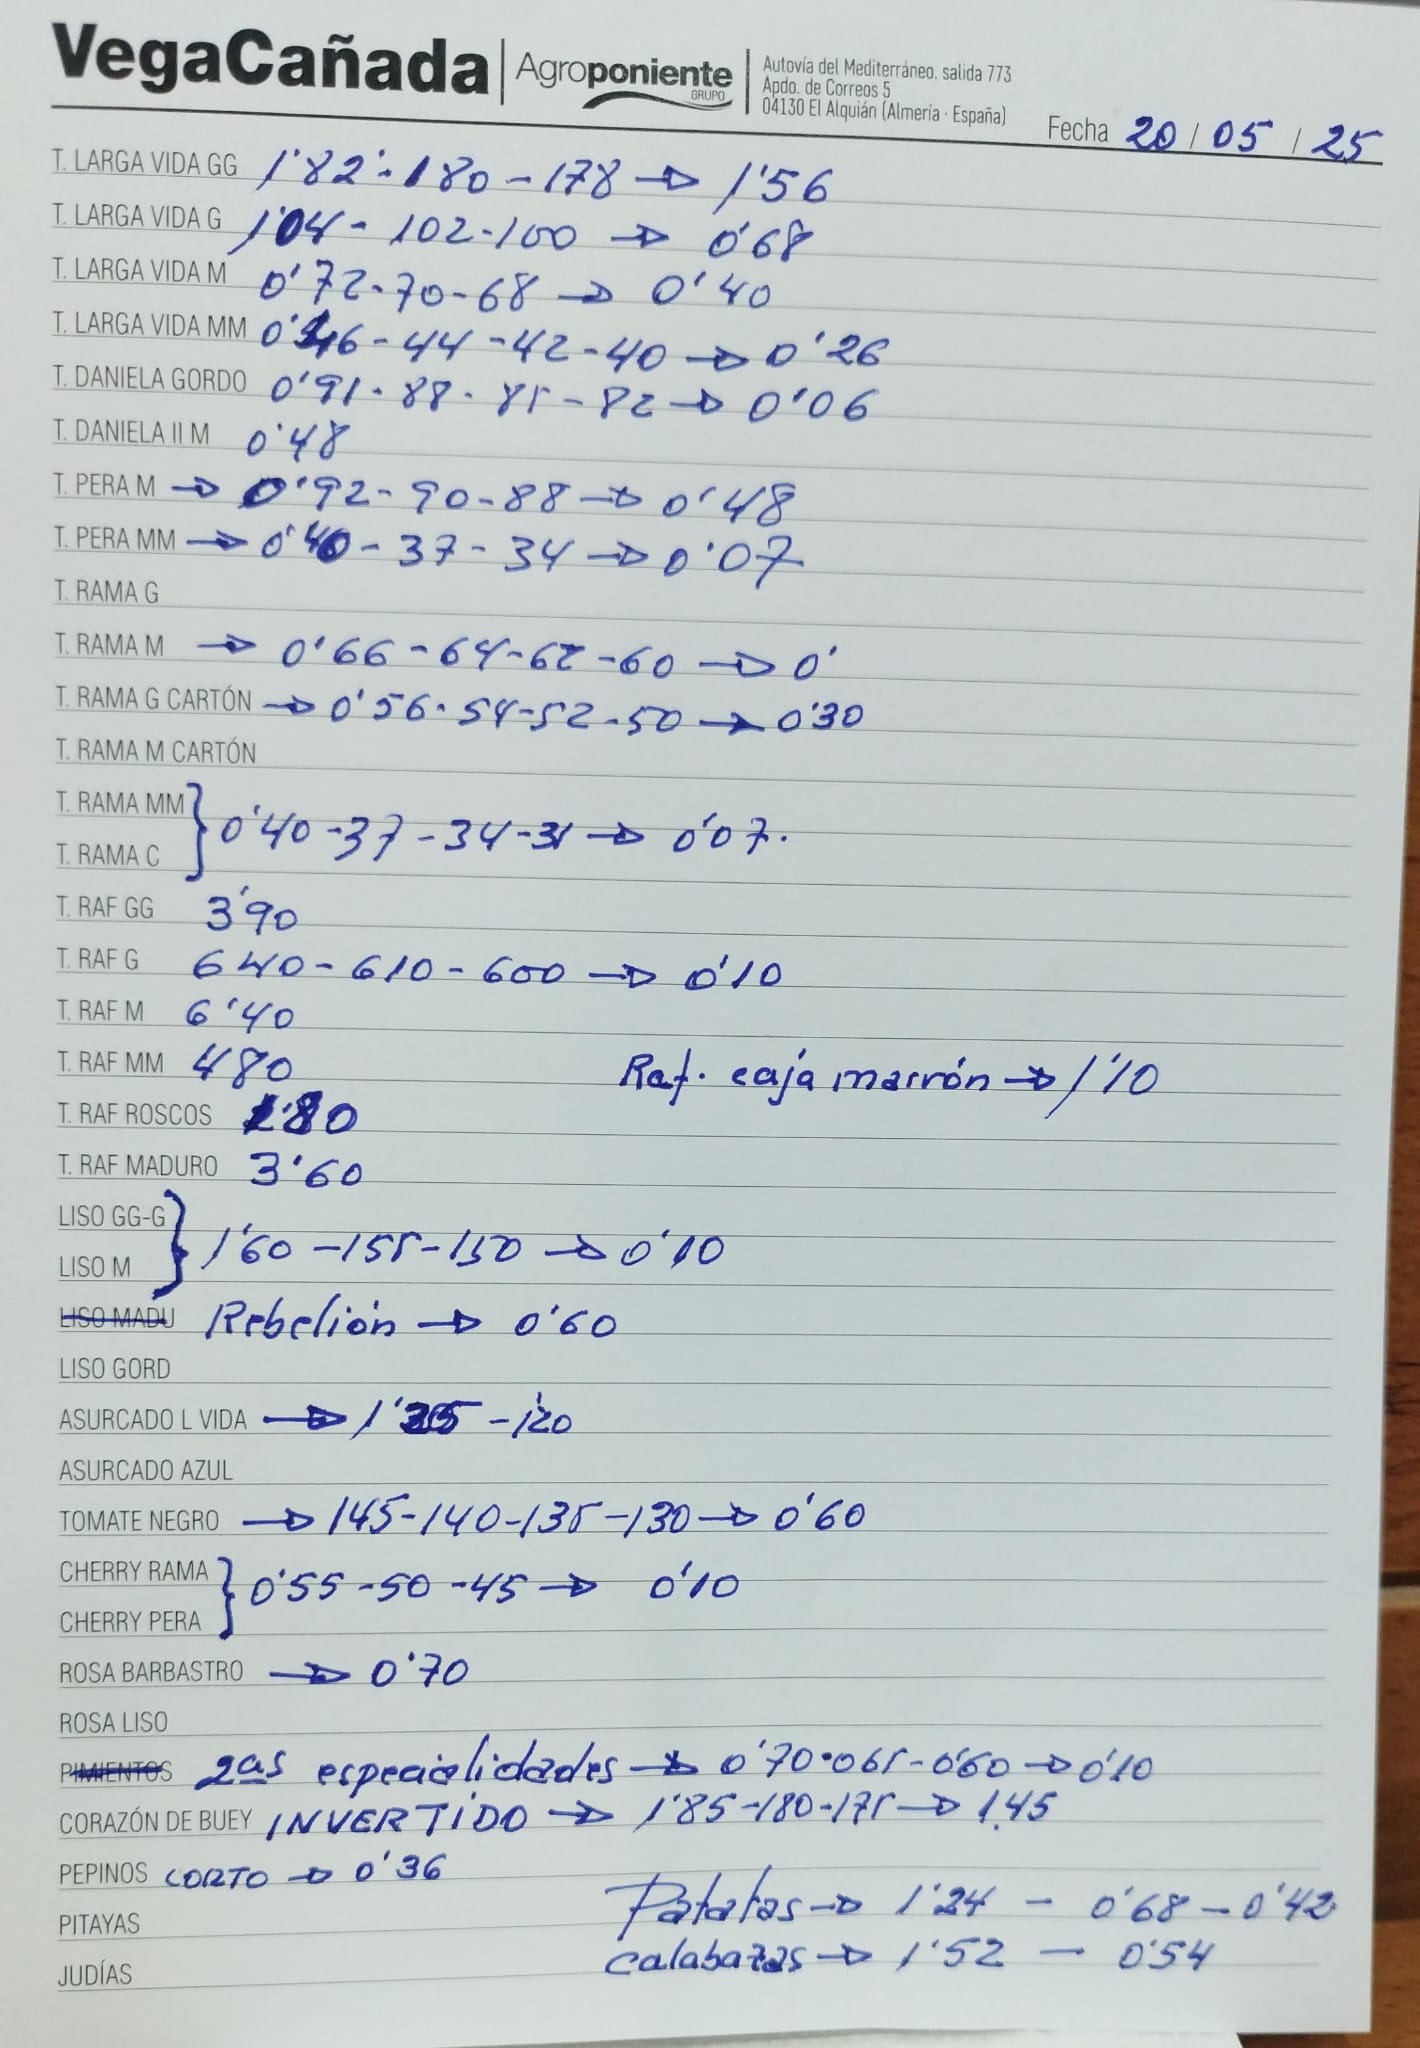 VegaCañada | Agroponiente GRUPO | Autovía del Mediterráneo, salida 773
Apdo. de Correos 5
04130 El Alquián (Almería · España)
Fecha 20 / 05 / 25
T. LARGA VIDA GG 1'82 - 180 - 178 → 1'56
T. LARGA VIDA G 1'04 - 102 - 100 → 0'68
T. LARGA VIDA M 0'72 - 70 - 68 → 0'40
T. LARGA VIDA MM 0'46 - 44 - 42 - 40 → 0'26
T. DANIELA GORDO 0'91 - 88 - 85 - 82 → 0'06
T. DANIELA II M 0'48
T. PERA M → 0'92 - 90 - 88 → 0'48
T. PERA MM → 0'40 - 37 - 34 → 0'07
T. RAMA G
T. RAMA M → 0'66 - 64 - 62 - 60 → 0'
T. RAMA G CARTÓN → 0'56 - 54 - 52 - 50 → 0'30
T. RAMA M CARTÓN
T. RAMA MM } 0'40 - 37 - 34 - 31 → 0'07.
T. RAMA C
T. RAF GG 3'90
T. RAF G 640 - 610 - 600 → 0'10
T. RAF M 6'40
T. RAF MM 480 Raf. caja marrón → 1'10
T. RAF ROSCOS 1'80
T. RAF MADURO 3'60
LISO GG-G } 1'60 - 155 - 150 → 0'10
LISO M
LISO MADU Rebelión → 0'60
LISO GORD
ASURCADO L VIDA → - 1'20
ASURCADO AZUL
TOMATE NEGRO → 145 - 140 - 135 - 130 → 0'60
CHERRY RAMA } 0'55 - 50 - 45 → 0'10
CHERRY PERA
ROSA BARBASTRO → 0'70
ROSA LISO
PIMIENTOS 2as especialidades → 0'70 - 065 - 0'60 → 0'10
CORAZÓN DE BUEY INVERTIDO → 1'85 - 180 - 175 → 1.45
PEPINOS CORTO → 0'36
PITAYAS Patatas → 1'24 - 0'68 - 0'42
JUDÍAS calabazas → 1'52 - 0'54